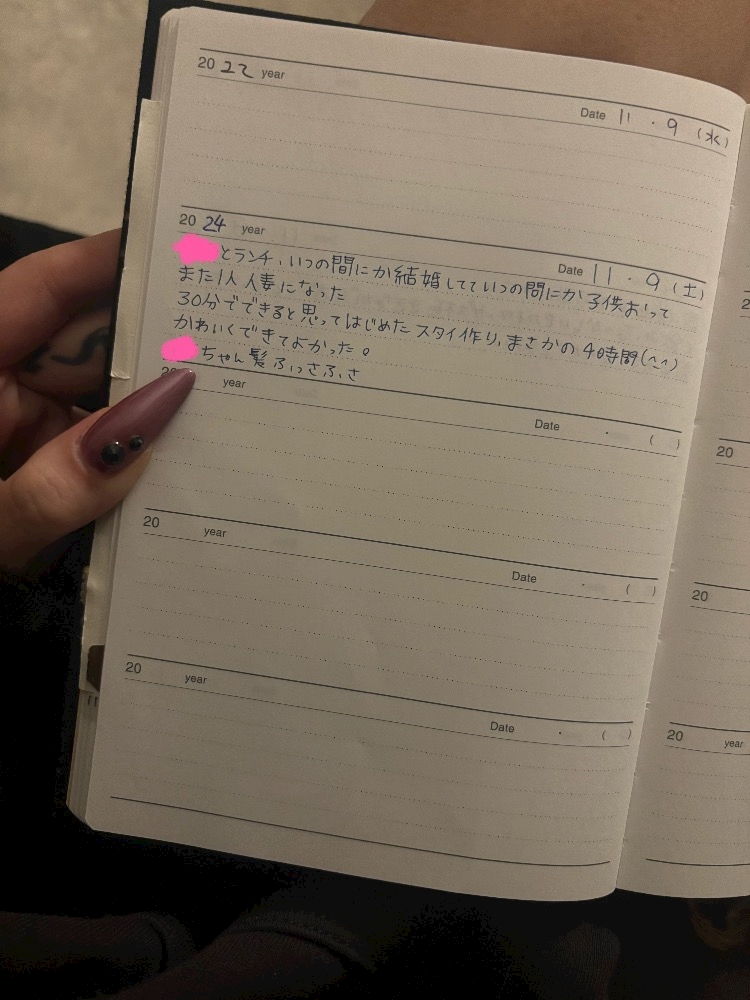 20 22 year
Date 11 ・ 9 (水)
20 24 year
Date 11 ・ 9 (土)
とランチ、いつの間にか結婚してていつの間にか子供おって
また1人人妻になった
30分でできると思ってはじめたスタイ作り、まさかの4時間(^_^)
かわいくできてよかった。
ちゃん髪ふっさふさ
20 year
Date ・ ( )
20 year
Date ・ ( )
20 year
Date ・ ( )
2
20
20
20 year